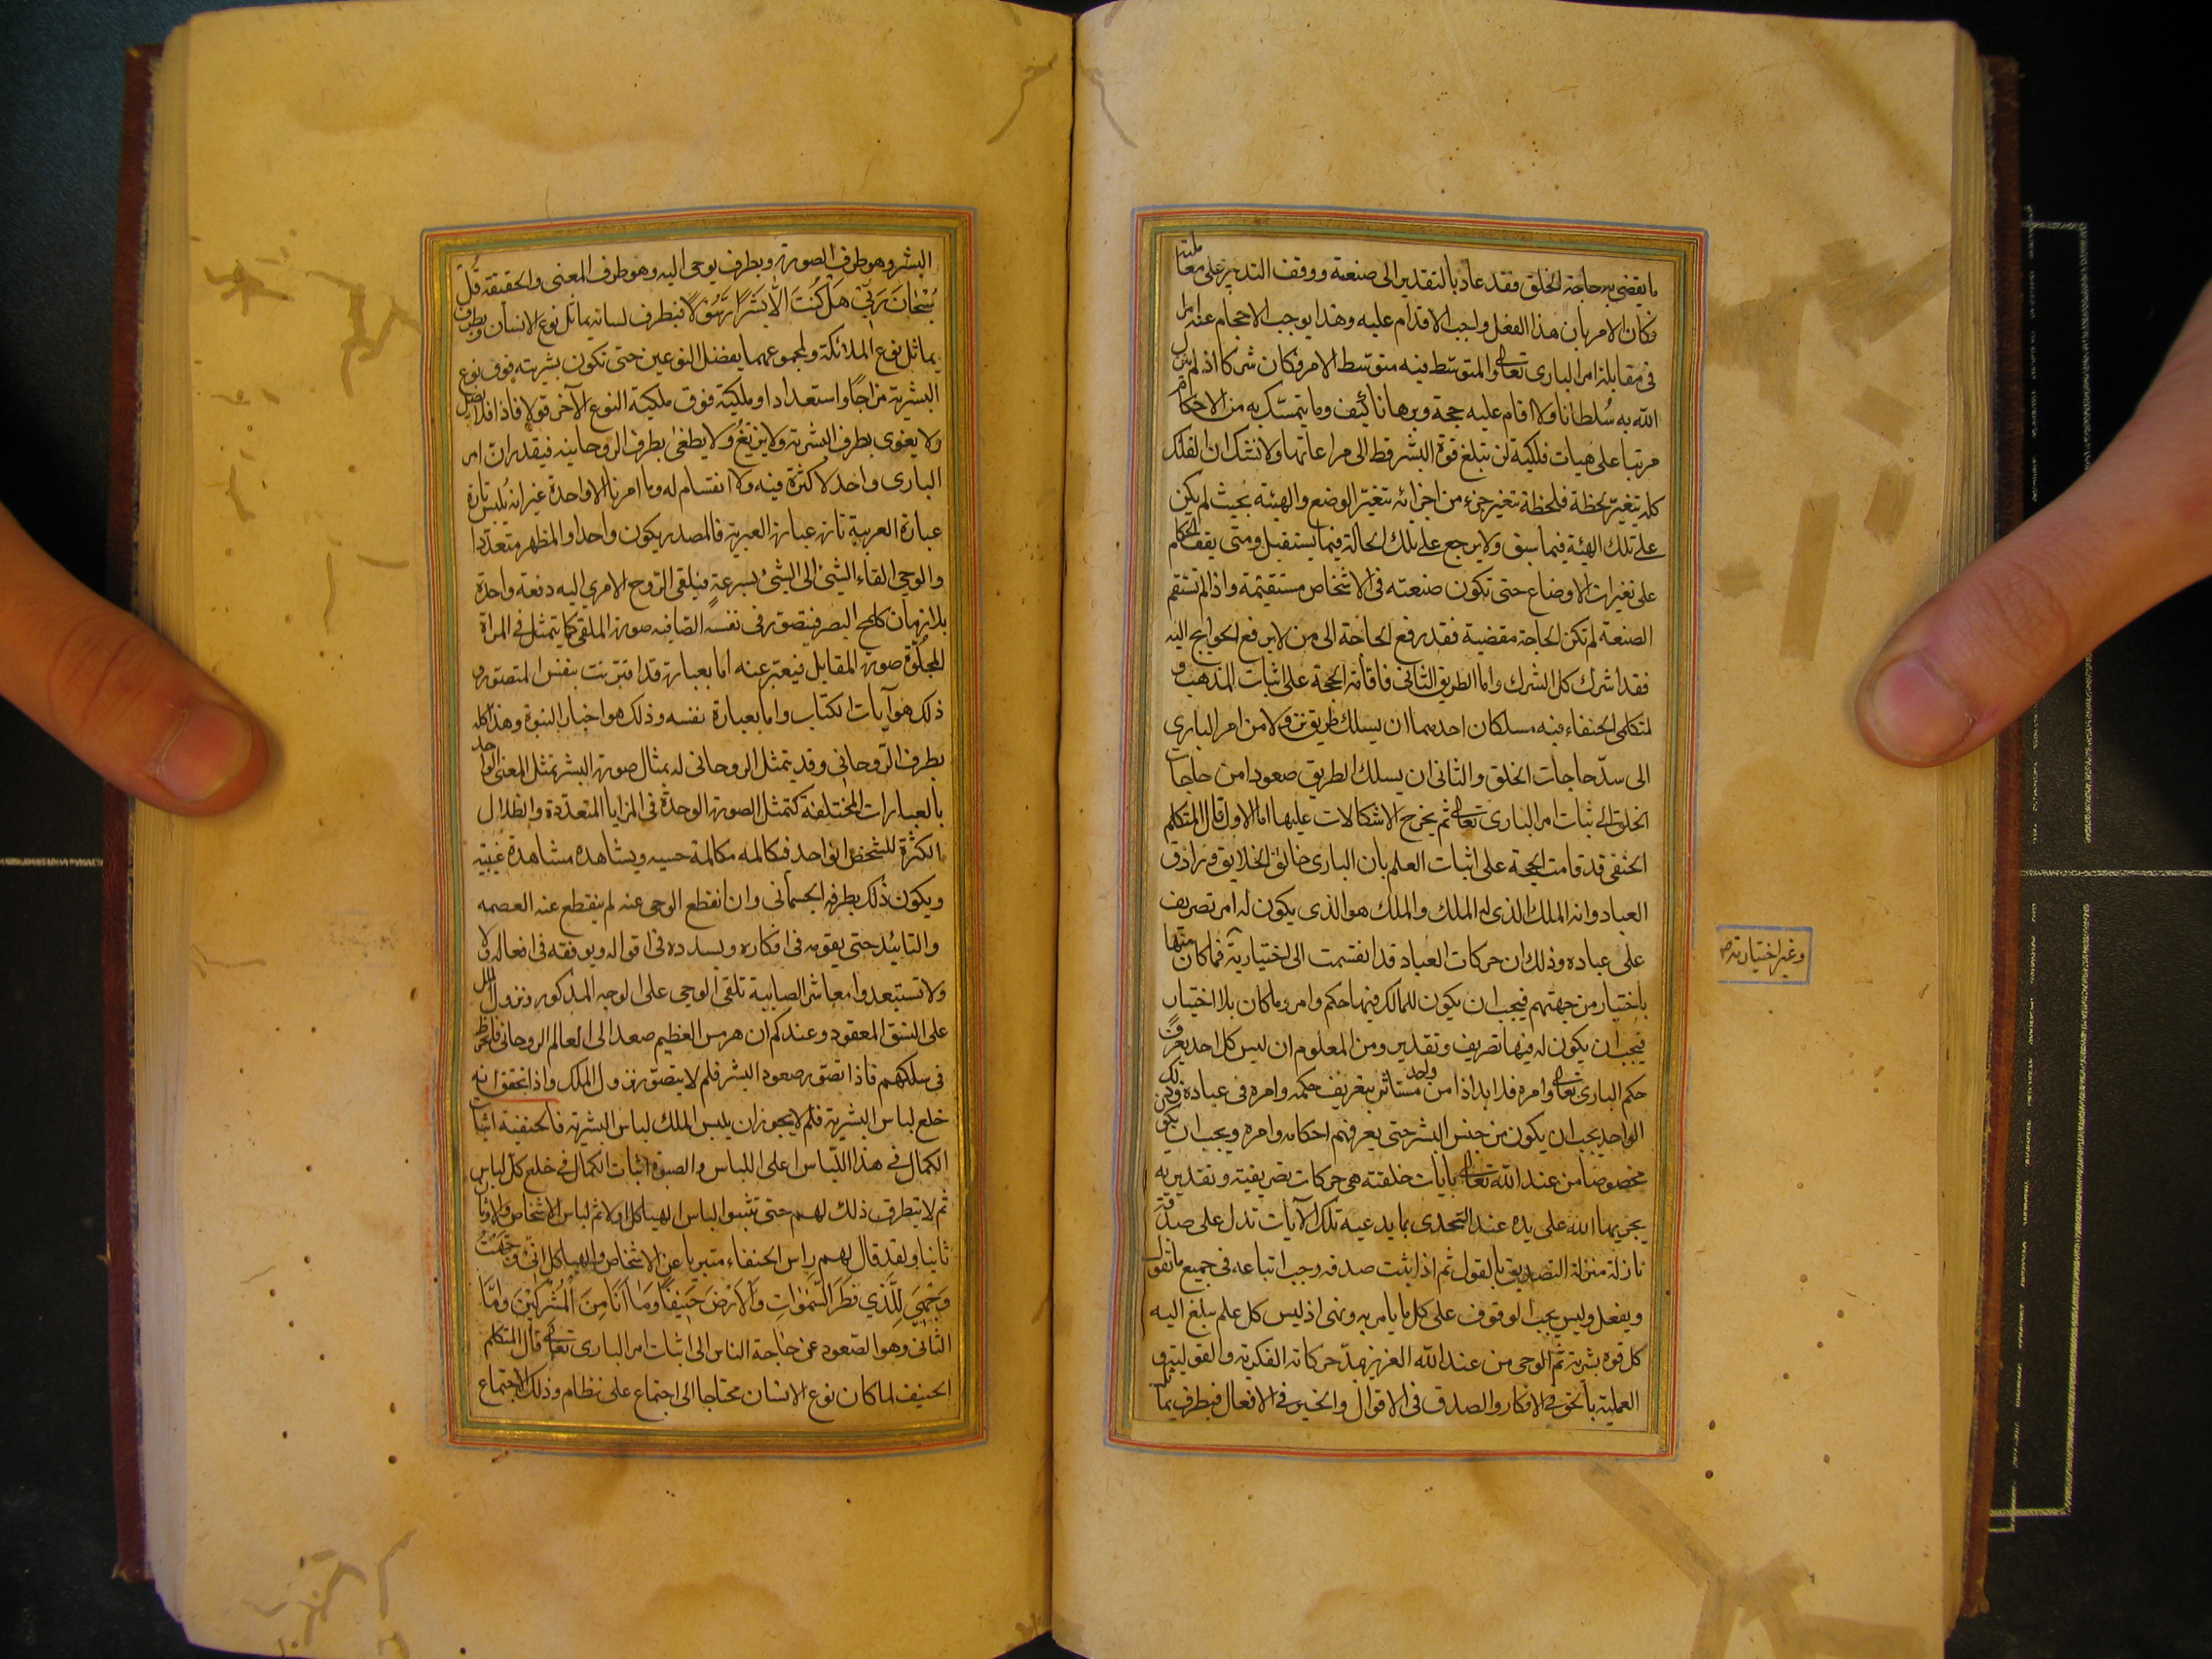 ما يقضى به حاجة الخلق فقد عاد بالتقدير الى صنعته ووقف التدبير على معاملته
فكان الامر بان هذا الفعل واجب الاقدام عليه وهذا يوجب الاحجام عنه امرا
فى مقابلة امر البارى تعالى والمتوسط فيه متوسط الامر فكان شركا اذ لم ينزل
الله به سُلطانا ولا اقام عليه حجة وبرهانا كيف وما يتمسّك به من الاحكام
مرتبا على هيات فلكية لن تبلغ قوة البشر قط الى مراعاتها ولا نشك ان الفلك
كله يتغير لحظة فلحظة بتغير جزء من اجزائه تغيّر الوضع والهيئة بحيث لم يكن
على تلك الهيئة فيما سبق ولا يرجع على تلك الحالة فيما يستقبل ومتى يقف الحاكم
على تغيرات الاوضاع حتى تكون صنعته فى الاشخاص مستقيمة واذا لم تستقم
الصنعة لم تكن الحاجة مقضية فقد رفع الحاجة الى من لا يرفع الحوايج اليه
فقد اشرك كل الشرك واما الطريق الثانى فاقامة الحجة على اثبات المذهب و
لمتكلمى الحنفاء فيه مسلكان احدهما ان يسلك طريق نزولا من امر البارى
الى سدّ حاجات الخلق والثانى ان يسلك الطريق صعودا من حاجات
الخلق الى اثبات امر البارى تعالى ثم يخرج الاشكالات عليها اما الاول قال المتكلم
الحنفى قد قامت الحجة على اثبات العلم بان البارى خالق الخلايق ورازق
العباد وانه الملك الذى له الملك والملك هو الذى يكون له امر تصريف
على عباده وذلك ان حركات العباد قد انقسمت الى اختيارية فما كان منها
وغير اختيارية صح
باختيار من جهتهم فيجب ان يكون للمالك فيها حكم وامر وما كان بلا اختيار
فيجب ان يكون له فيها تصريف وتقدير ومن المعلوم ان ليس كل احد يعرف
حكم البارى تعالى وامره فلا بد اذا من واحد مستاثر بتعريف حكمه وامره فى عباده وذلك
الواحد يجب ان يكون من جنس البشر حتى يعرفهم احكامه وامره ويجب ان يكون
مخصوصا من عند الله تعالى بايات خلقته هى حركات تصريفية وتقديرية
يجريها الله على يده عند التحدى بما يدعيه تلك الآيات تدل على صدقه
نازلة منزلة التصديق بالقول ثم اذا ثبت صدقه وجب اتباعه فى جميع ما يقول
ويفعل وليس يجب الوقوف على كل ما يامر به ونهى اذ ليس كل علم يبلغ اليه
كل قوه بشرية ثم الوحى من عند الله العزيز يمدّ حركاته الفكرية والقولية و
العملية بالحق فى الافكار والصدق فى الاقوال والخير فى الافعال فبطرف يماثل
البشر وهو طرف الصورة وبطرف يوحى اليه وهو طرف المعنى والحقيقة قُلْ
سُبْحَانَ رَبّى هَلْ كُنْتَ اِلّا بَشَرًا رَسُوْلًا فبطرف لسانه يماثل نوع الانسان وبطرف
يماثل نوع الملائكة وبمجموعهما يفضل النوعين حتى تكون بشريته فوق نوع
البشرية مزاجًا واستعدادا وملكيته فوق ملكية النوع الآخر قولا فاذا فلا يضل
ولا يغوى بطرف البشرية ولا يزيغُ ولا يطغى بطرف الروحانية فيقدر ان امر
البارى واحد لا كثرة فيه ولا انقسام له وما امرنا الا واحدة غير انه يلبس تارة
عبارة العربية تارة عبارة العبرية فالمصدر يكون واحدا والمظهر متعدّدا
والوحى القاء الشئ الى الشئ بسرعة فيلقى الرّوح الامرى اليه دفعة واحدة
بلا زمان كلمح البصر فيتصور فى نفسه الصّافية صورة الملقى كما يتمثل فى المراة
المجلُوّة صورة المقابل فيعبّر عنه اما بعبارة قد اقترنت بنفس المتصور و
ذلك هو آيات الكتاب واما بعبارة نفسه وذلك هو اخبار النبوة وهذا كله
بطرف الرّوحانى وقد يتمثل الروحانى له بمثال صورة البشر تمثل المعنى الواحد
بالعبارات المختلفة كتمثل الصورة الوحدة فى المرايا المتعدّدة والظلال
الكثرة للشخص الواحد فيكالمه مكالمة حسيه ويشاهده مشاهدة غيبيّه
ويكون ذلك بطرفه الجسمانى وان انقطع الوحى عنه لم ينقطع عنه العصمه
والتائيد حتى يقومه فى افكاره ويسدده فى اقواله ويوفقه فى افعاله ولا
ولا تستبعدوا معاشر الصابية تلقى الوحى على الوجه المذكور ونزول الملك
على النسق المعقود وعندكم ان هرمس العظيم صعد الى العالم الروحانى فانخرط
فى سلكهم فاذا تصّور صعود البشر فلم لا يتصور نزول الملك واذا تحقق انه
خلع لباس البشرية فلم لا يجوز ان يلبس الملك لباس البشرية فالحنيفية اثبات
الكمال فى هذا اللّباس اعلى اللباس والصبوة اثبات الكمال فى خلع كل لباس
ثم لا يتطرق ذلك لهم حتى تثبتوا لباس الهياكل اولا ثم لباس الاشخاص والاوثان
ثانيا ولقد قال لهم راس الحنفاء متبريا عن الاشخاص والهياكل انّى وَجّهْتُ
وَجْهِىَ لِلَّذِي فَطَرَ السَّمٰوَاتِ وَالْاَرْضَ حَنِيفًا وَمَا اَنَا مِنَ الْمُشْرِكِيْنَ وامّا
الثانى وهو الصّعود عن حاجة الناس الى اثبات امر البارى تعالى قال المتكلم
الحنيف لما كان نوع الانسان محتاجا الى اجتماع على نظام وذلك الاجتماع